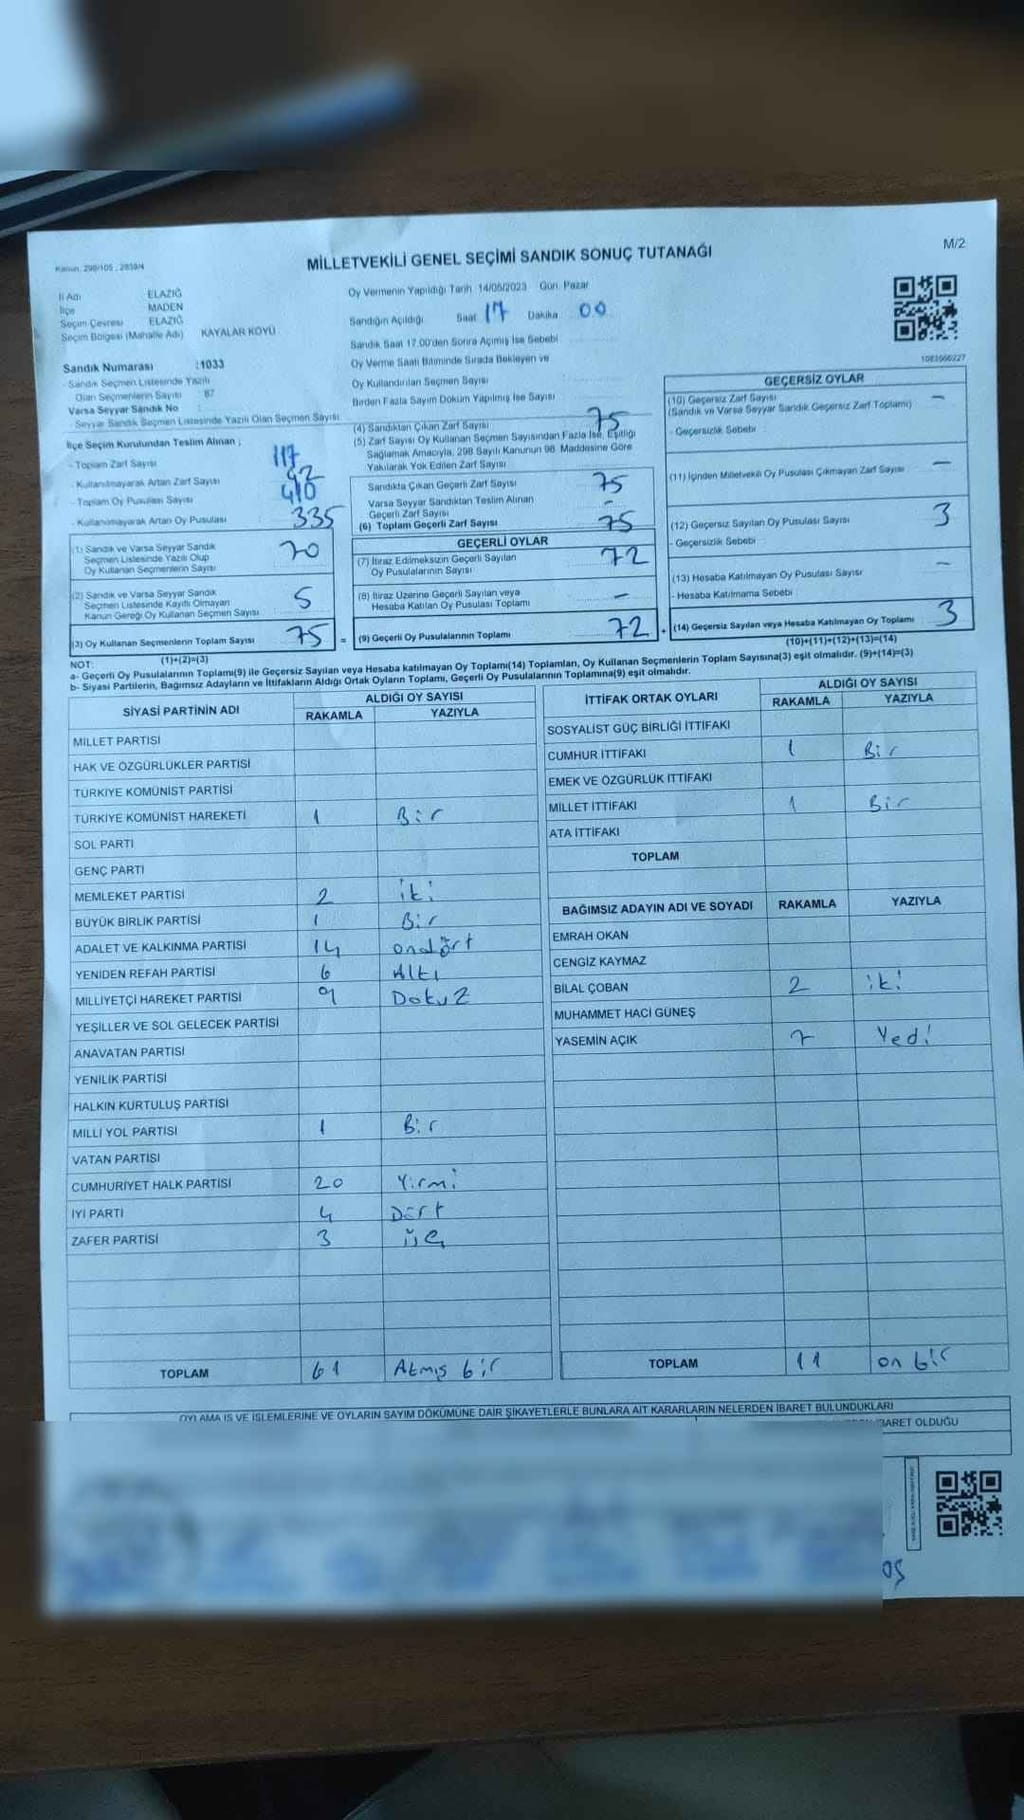 M/2
Kanun: 298/105 , 2839/4
MİLLETVEKİLİ GENEL SEÇİMİ SANDIK SONUÇ TUTANAĞI
İl Adı ELAZIĞ
İlçe MADEN
Seçim Çevresi ELAZIĞ
Seçim Bölgesi (Mahalle Adı) KAYALAR KÖYÜ
Oy Vermenin Yapıldığı Tarih 14/05/2023 Gün: Pazar
Sandığın Açıldığı Saat 17 Dakika 00
Sandık Saat 17.00'den Sonra Açılmış İse Sebebi
Oy Verme Saati Bitiminde Sırada Bekleyen ve
Oy Kullandırılan Seçmen Sayısı
Birden Fazla Sayım Döküm Yapılmış İse Sayısı
Sandık Numarası :1033
- Sandık Seçmen Listesinde Yazılı
Olan Seçmenlerin Sayısı : 87
Varsa Seyyar Sandık No
- Seyyar Sandık Seçmen Listesinde Yazılı Olan Seçmen Sayısı
İlçe Seçim Kurulundan Teslim Alınan ;
- Toplam Zarf Sayısı 117
- Kullanılmayarak Artan Zarf Sayısı 42
- Toplam Oy Pusulası Sayısı 410
- Kullanılmayarak Artan Oy Pusulası 335
(1) Sandık ve Varsa Seyyar Sandık
Seçmen Listesinde Yazılı Olup
Oy Kullanan Seçmenlerin Sayısı 70
(2) Sandık ve Varsa Seyyar Sandık
Seçmen Listesinde Kayıtlı Olmayan
Kanun Gereği Oy Kullanan Seçmen Sayısı 5
(3) Oy Kullanan Seçmenlerin Toplam Sayısı 75 =
(1)+(2)=(3)
(4) Sandıktan Çıkan Zarf Sayısı 75
(5) Zarf Sayısı Oy Kullanan Seçmen Sayısından Fazla İse, Eşitliği
Sağlamak Amacıyla, 298 Sayılı Kanunun 98. Maddesine Göre
Yakılarak Yok Edilen Zarf Sayısı -
Sandıkta Çıkan Geçerli Zarf Sayısı 75
Varsa Seyyar Sandıktan Teslim Alınan
Geçerli Zarf Sayısı -
(6) Toplam Geçerli Zarf Sayısı 75
GEÇERLİ OYLAR
(7) İtiraz Edilmeksizin Geçerli Sayılan
Oy Pusulalarının Sayısı 72
(8) İtiraz Üzerine Geçerli Sayılan veya
Hesaba Katılan Oy Pusulası Toplamı -
(9) Geçerli Oy Pusulalarının Toplamı 72 +
1083900227
GEÇERSİZ OYLAR
(10) Geçersiz Zarf Sayısı
(Sandık ve Varsa Seyyar Sandık Geçersiz Zarf Toplamı) -
- Geçersizlik Sebebi
(11) İçinden Milletvekili Oy Pusulası Çıkmayan Zarf Sayısı -
(12) Geçersiz Sayılan Oy Pusulası Sayısı 3
- Geçersizlik Sebebi
(13) Hesaba Katılmayan Oy Pusulası Sayısı -
- Hesaba Katılmama Sebebi
(14) Geçersiz Sayılan veya Hesaba Katılmayan Oy Toplamı 3
(10)+(11)+(12)+(13)=(14)
NOT:
a- Geçerli Oy Pusulalarının Toplamı(9) ile Geçersiz Sayılan veya Hesaba katılmayan Oy Toplamı(14) Toplamları, Oy Kullanan Seçmenlerin Toplam Sayısına(3) eşit olmalıdır. (9)+(14)=(3)
b- Siyasi Partilerin, Bağımsız Adayların ve İttifakların Aldığı Ortak Oyların Toplamı, Geçerli Oy Pusulalarının Toplamına(9) eşit olmalıdır.
SİYASİ PARTİNİN ADI ALDIĞI OY SAYISI
RAKAMLA YAZIYLA
MİLLET PARTİSİ
HAK VE ÖZGÜRLÜKLER PARTİSİ
TÜRKİYE KOMÜNİST PARTİSİ
TÜRKİYE KOMÜNİST HAREKETİ 1 Bir
SOL PARTİ
GENÇ PARTİ
MEMLEKET PARTİSİ 2 iki
BÜYÜK BİRLİK PARTİSİ 1 Bir
ADALET VE KALKINMA PARTİSİ 14 ondört
YENİDEN REFAH PARTİSİ 6 Altı
MİLLİYETÇİ HAREKET PARTİSİ 9 Dokuz
YEŞİLLER VE SOL GELECEK PARTİSİ
ANAVATAN PARTİSİ
YENİLİK PARTİSİ
HALKIN KURTULUŞ PARTİSİ
MİLLİ YOL PARTİSİ 1 Bir
VATAN PARTİSİ
CUMHURİYET HALK PARTİSİ 20 Yirmi
İYİ PARTİ 4 Dört
ZAFER PARTİSİ 3 üç
TOPLAM 61 Atmış bir
İTTİFAK ORTAK OYLARI ALDIĞI OY SAYISI
RAKAMLA YAZIYLA
SOSYALİST GÜÇ BİRLİĞİ İTTİFAKI
CUMHUR İTTİFAKI 1 Bir
EMEK VE ÖZGÜRLÜK İTTİFAKI
MİLLET İTTİFAKI 1 Bir
ATA İTTİFAKI
TOPLAM
BAĞIMSIZ ADAYIN ADI VE SOYADI RAKAMLA YAZIYLA
EMRAH OKAN
CENGİZ KAYMAZ
BİLAL ÇOBAN 2 iki
MUHAMMET HACİ GÜNEŞ
YASEMİN AÇIK 7 Yedi
TOPLAM 11 on bir
OYLAMA İŞ VE İŞLEMLERİNE VE OYLARIN SAYIM DÖKÜMÜNE DAİR ŞİKAYETLERLE BUNLARA AİT KARARLARIN NELERDEN İBARET BULUNDUKLARI
BARET OLDUĞU